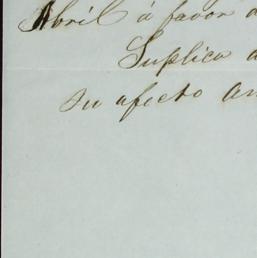 Abril á favor d
Suplica a
su afecto am